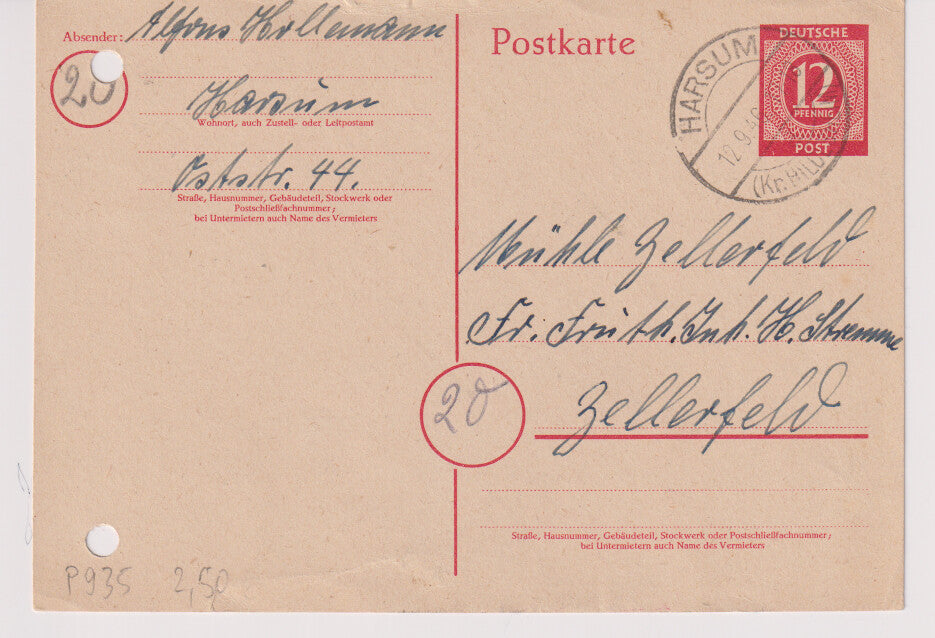 Absender: Alfons Hollemann
20
Harsum
Wohnort, auch Zustell- oder Leitpostamt
Oststr. 44.
Straße, Hausnummer, Gebäudeteil, Stockwerk oder
Postschließfachnummer;
bei Untermietern auch Name des Vermieters
Postkarte
HARSUM
12.9.46
(Kr. HILD
DEUTSCHE
12
PFENNIG
POST
Mühle Zellerfeld
Fr. Fruth. Inh. H. Stremme
20
Zellerfeld
Straße, Hausnummer, Gebäudeteil, Stockwerk oder Postschließfachnummer;
bei Untermietern auch Name des Vermieters
P935 2,50